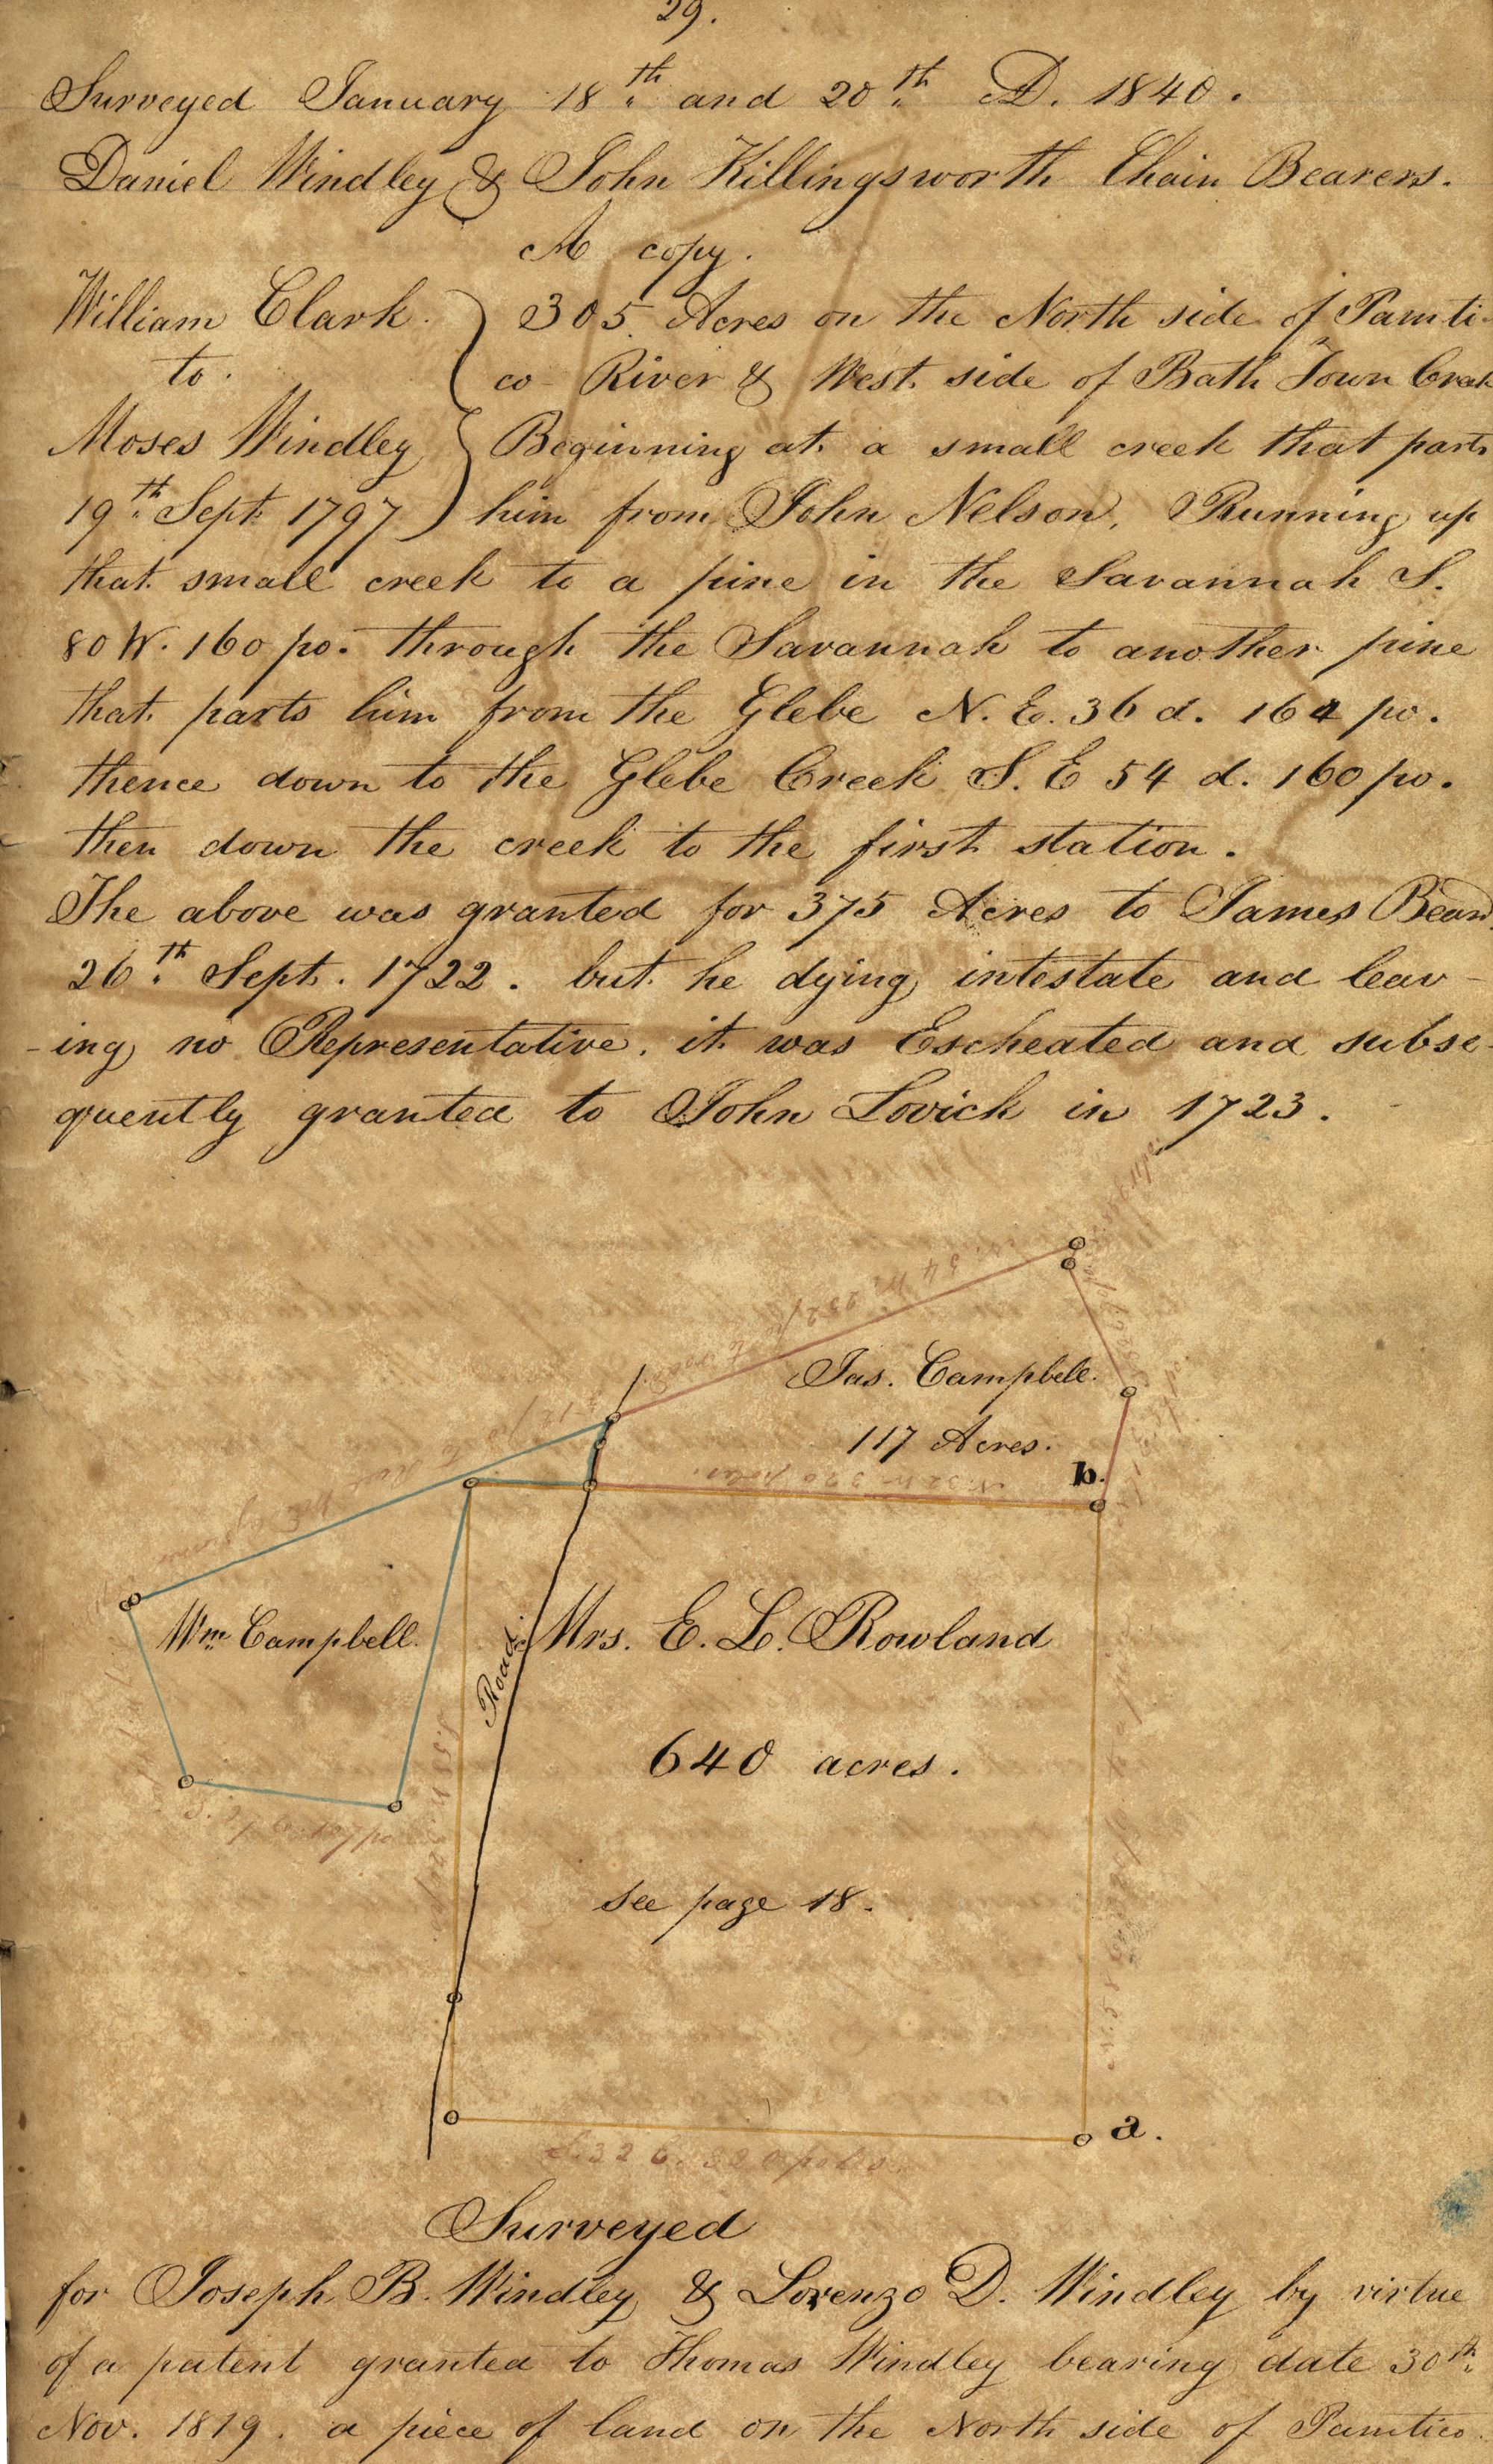 29.
Surveyed January 18th and 20th A.D. 1840.
Daniel Windley & John Killingsworth Chain Bearers.
A copy.
William Clark. 305 Acres on the North side of Pamti-
to. co River & West side of Bath Town Creek
Moses Windley Beginning at a small creek that parts
19th Sept. 1797 him from John Nelson, Running up
that small creek to a pine in the Savannah S.
80 W. 160 po. through the Savannah to another pine
that parts him from the Glebe N. E. 36 d. 164 po.
thence down to the Glebe Creek S. E 54 d. 160 po.
then down the creek to the first station.
The above was granted for 375 Acres to James Beard
26th Sept. 1722. but he dying intestate and leav-
-ing no Representative. it was Escheated and subse-
quently granted to John Lovick in 1723.
Jas. Campbell.
117 Acres.
N. 32 W 320 poles.
b.
Wm Campbell.
Road.
Mrs. E. L. Rowland
640 acres.
see page 18.
a.
S. 32 E. 320 poles.
Surveyed
for Joseph B. Windley & Lorenzo D. Windley by virtue
of a patent granted to Thomas Windley bearing date 30th
Nov. 1819. a piece of land on the North side of Pamtico